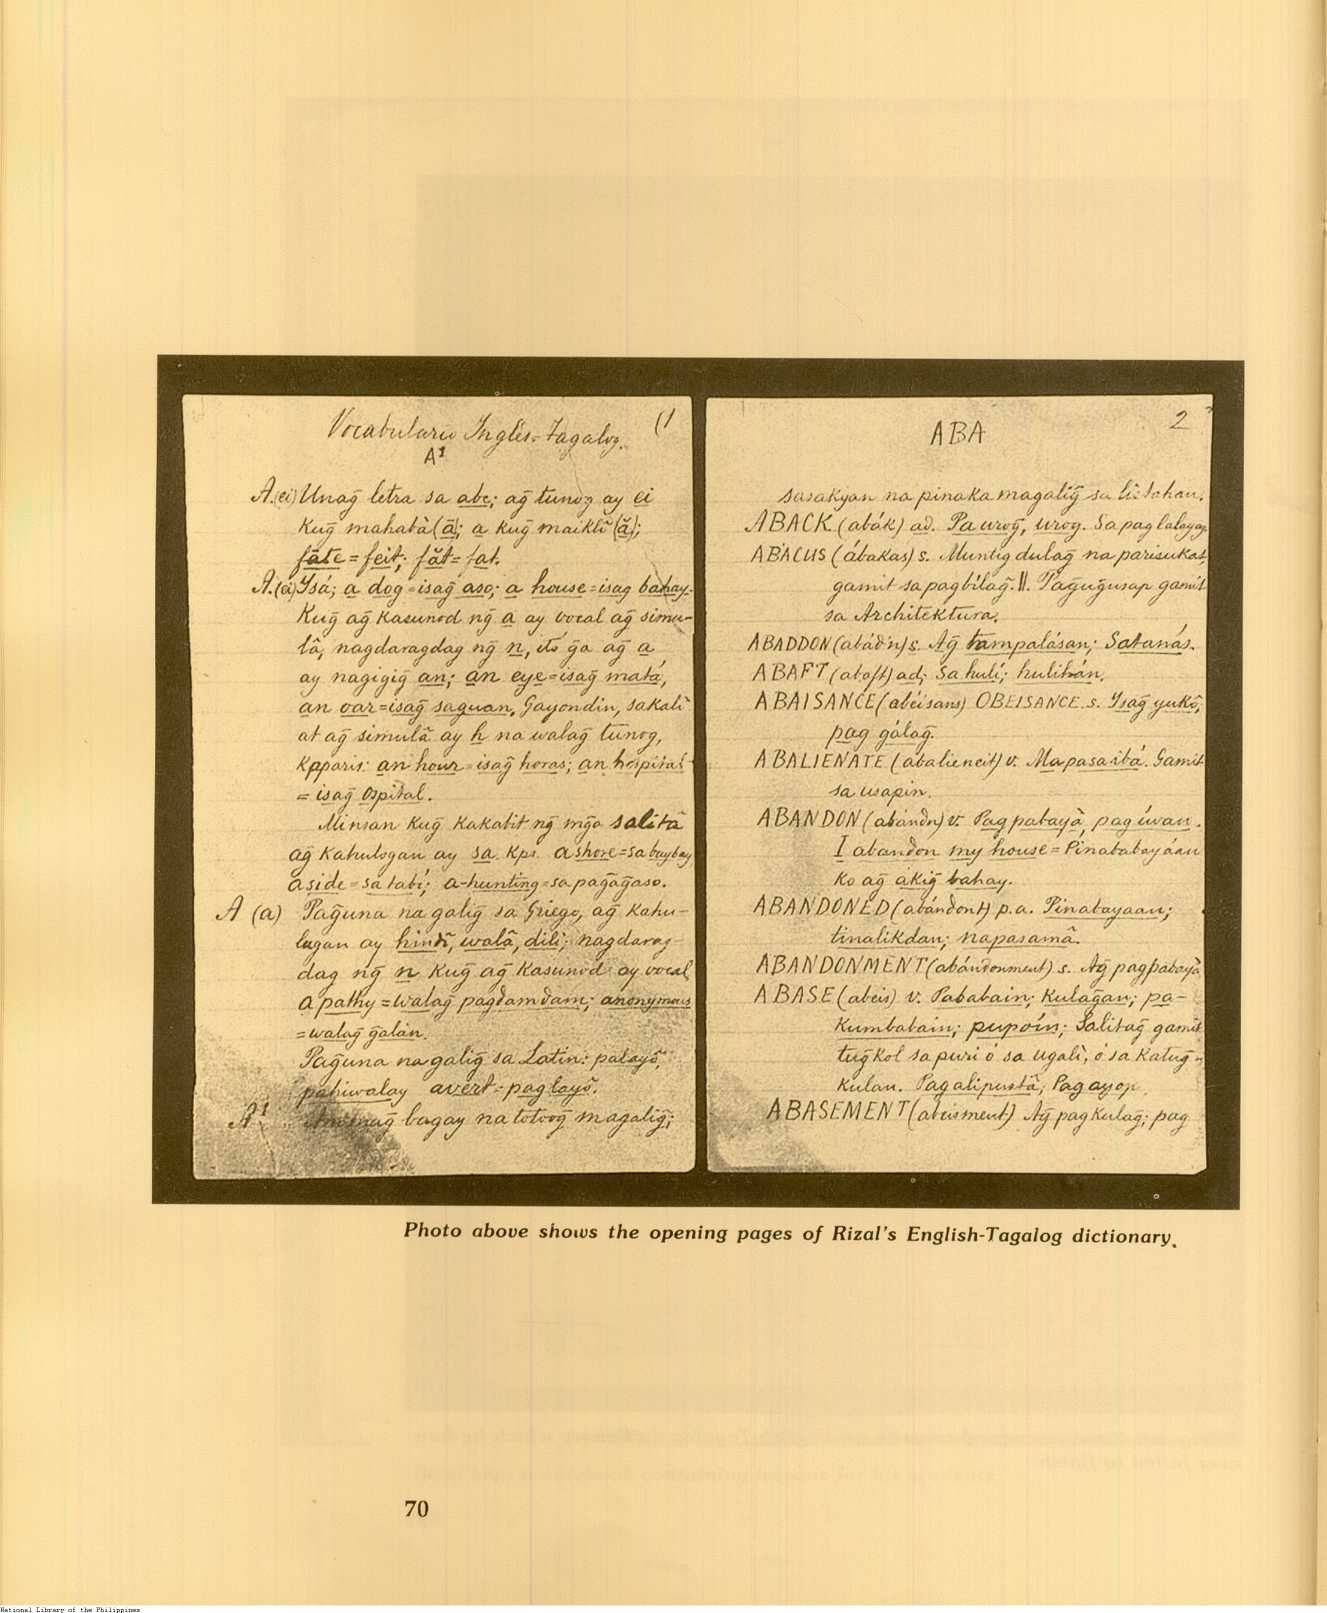 Vocabulario Inglés-Tagalog. (1
A¹
A.(ei) Unag̃ letra sa abc; ag̃ tunog ay ei
kug̃ mahabà (ā); a kug̃ maiklî (ă);
fāte = feit; făt = fat.
A.(ei) Ysá; a dog = isag̃ aso; a house = isag bahay.
Kug̃ ag̃ kasunod ng̃ a ay vocal ag̃ simu-
lâ, nagdaragdag ng̃ n, itó g̃a ag̃ a
ay nagigig̃ an; an eye = isag̃ matá,
an oar = isag̃ saguan. Gayondin, sakali
at ag̃ simulâ ay h na walag̃ tunog,
kpparis: an hour = isag̃ horas; an hospital
= isag̃ ospital.
Minsan kug̃ kakabit ng̃ mg̃a salitâ
ag̃ kahulogan ay sa. kps. ashore = sa baybay
aside = sa tabí; a-hunting = sa pag̃ag̃aso.
A (a) Pag̃una na galig̃ sa Griego, ag̃ kahu-
lugan ay hindî, walâ, dili; nagdarag-
dag ng̃ n kug̃ ag̃ kasunod ay vocal
apathy = walag̃ pagdamdam; anonymous
= walag̃ g̃alan.
Pag̃una na galig̃ sa Latin: palayô,
pahiwalay avert = paglayô.
A¹ bagay na totoog̃ magalig̃;
ABA 2
sasakyan na pinaka magalig̃ sa listahan.
ABACK (abák) ad. Pa urog̃, urog. Sa paglalayag
ABACUS (ábakas) s. Muntig dulag̃ na parisukat,
gamit sa pagbílag̃. II. Tag̃ug̃usap gamit
sa Architektura.
ABADDON (abád'n) s. Ag̃ tampalásan; Satanás.
ABAFT (abaft) ad; Sa hulí; hulihán.
ABAISANCE (abéisans) OBEISANCE. s. Ysag̃ yukô;
pag gálag̃.
ABALIENATE (abalieneit) v. Mapasaibá. Gamit
sa usapin.
ABANDON (abándn) v. Pagpabayà, pag íwan.
I abandon my house = Pinababayáan
ko ag̃ akig̃ bahay.
ABANDONED (abándont) p.a. Pinabayaan;
tinalikdan; napasamâ.
ABANDONMENT (abándonment) s. Ag̃ pagpabayà
ABASE (abeis) v. Pababain; kulag̃an; pa-
kumbabain; pupoín; Salitag̃ gamit
tug̃kol sa puri ó sa ugalì, ó sa katug̃-
kulan. Pag alipustâ; Pag ayop
ABASEMENT (abeisment) Ag̃ pagkulag̃; pag
Photo above shows the opening pages of Rizal's English-Tagalog dictionary.
70
National Library of the Philippines